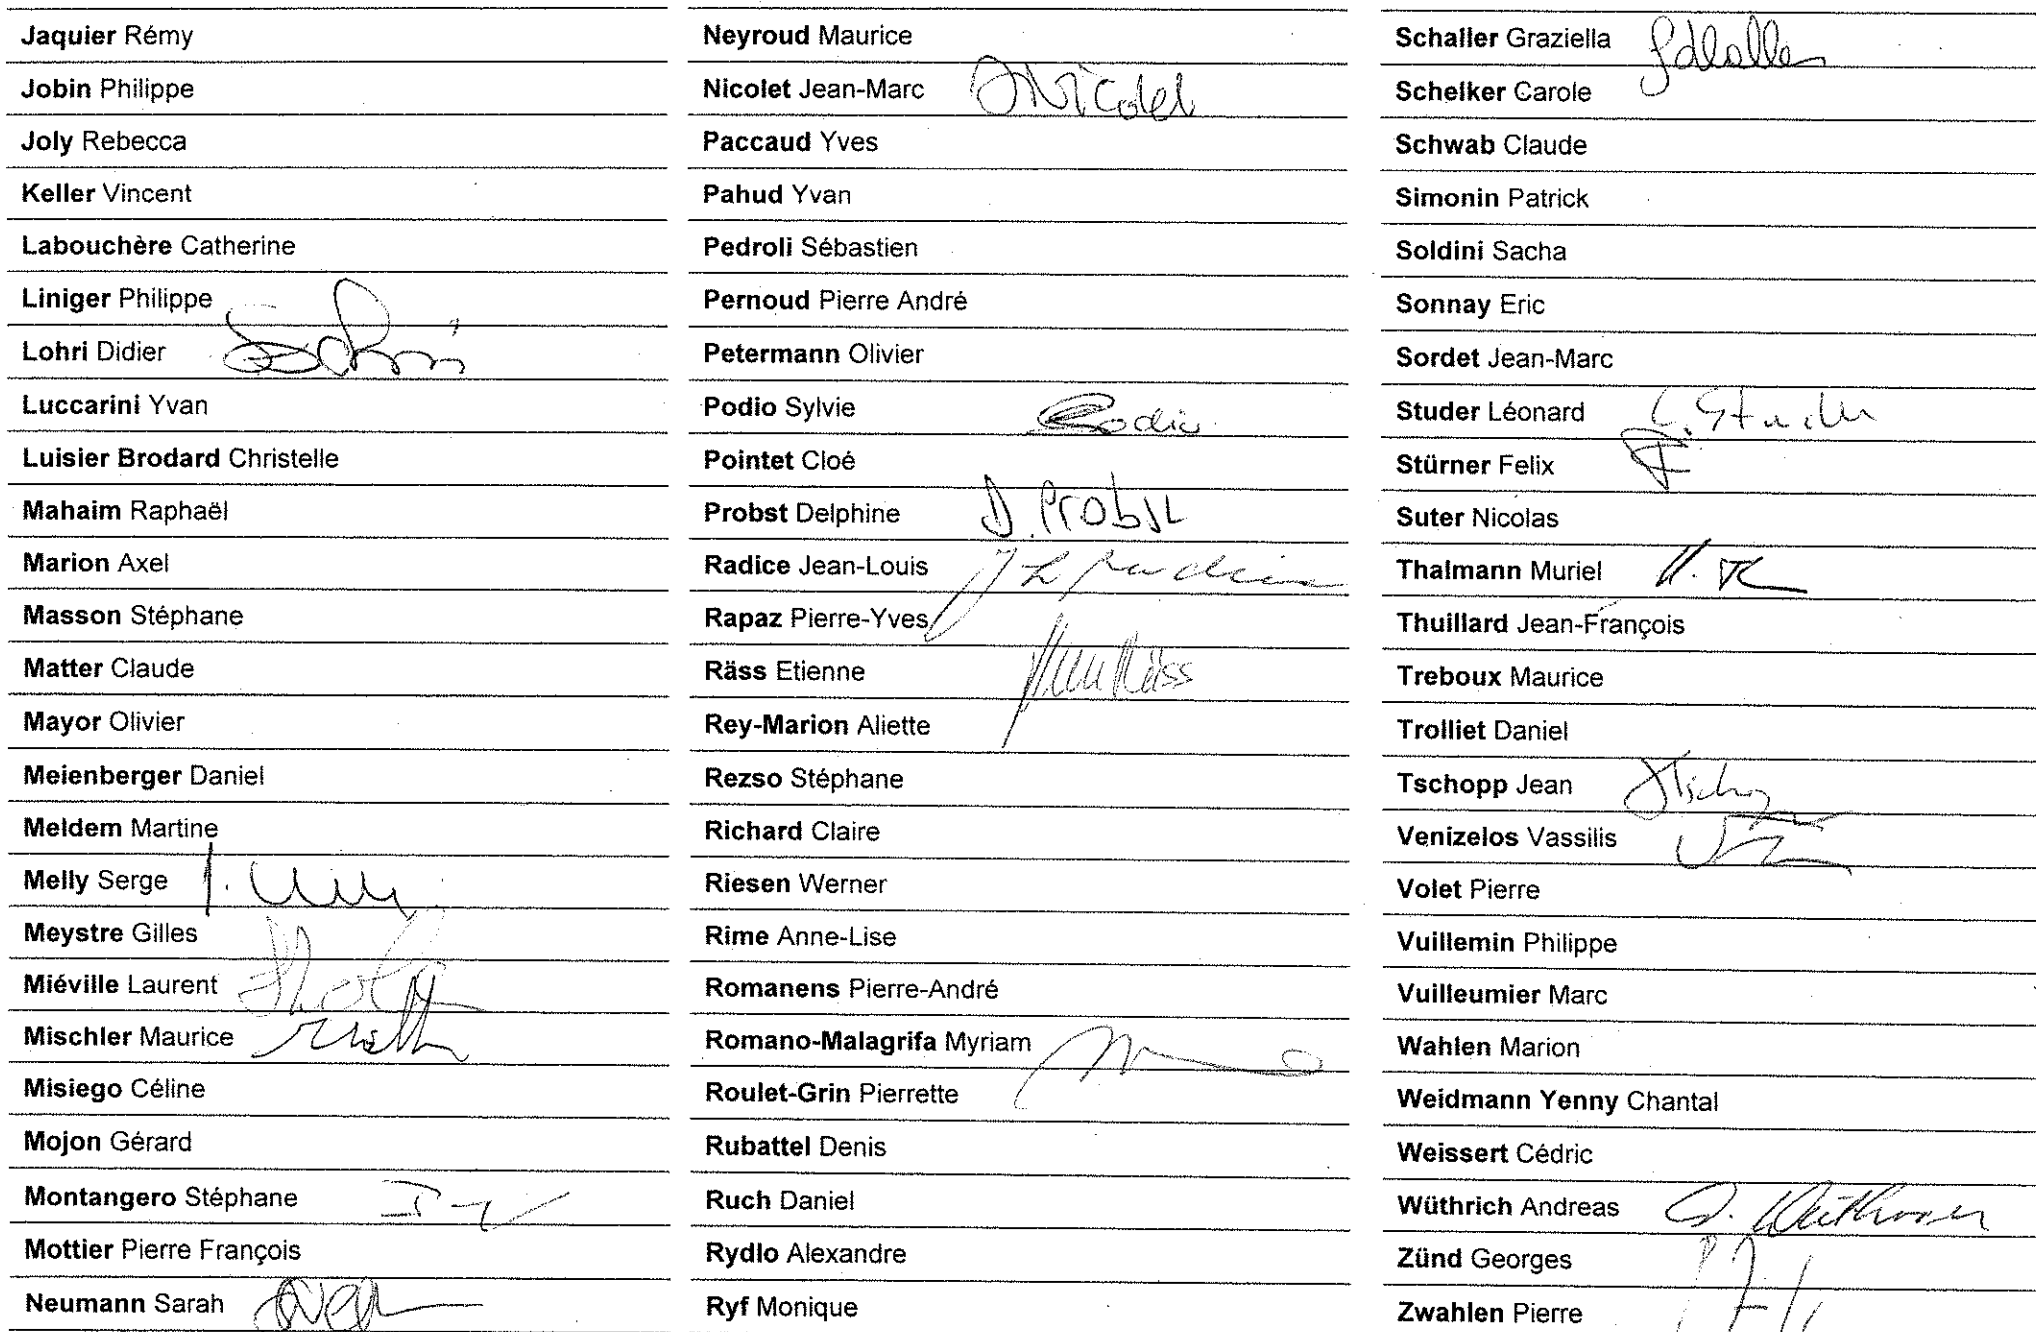 Jaquier Rémy
Jobin Philippe
Joly Rebecca
Keller Vincent
Labouchère Catherine
Liniger Philippe
Lohri Didier
Luccarini Yvan
Luisier Brodard Christelle
Mahaim Raphaël
Marion Axel
Masson Stéphane
Matter Claude
Mayor Olivier
Meienberger Daniel
Meldem Martine
Melly Serge
Meystre Gilles
Miéville Laurent
Mischler Maurice
Misiego Céline
Mojon Gérard
Montangero Stéphane
Mottier Pierre François
Neumann Sarah
Neyroud Maurice
Nicolet Jean-Marc JNicolet
Paccaud Yves
Pahud Yvan
Pedroli Sébastien
Pernoud Pierre André
Petermann Olivier
Podio Sylvie SPodio
Pointet Cloé
Probst Delphine D. Probst
Radice Jean-Louis JL Radice
Rapaz Pierre-Yves
Räss Etienne Räss
Rey-Marion Aliette
Rezso Stéphane
Richard Claire
Riesen Werner
Rime Anne-Lise
Romanens Pierre-André
Romano-Malagrifa Myriam
Roulet-Grin Pierrette
Rubattel Denis
Ruch Daniel
Rydlo Alexandre
Ryf Monique
Schaller Graziella
Schelker Carole
Schwab Claude
Simonin Patrick
Soldini Sacha
Sonnay Eric
Sordet Jean-Marc
Studer Léonard L. Studer
Stürner Felix
Suter Nicolas
Thalmann Muriel
Thuillard Jean-François
Treboux Maurice
Trolliet Daniel
Tschopp Jean
Venizelos Vassilis
Volet Pierre
Vuillemin Philippe
Vuilleumier Marc
Wahlen Marion
Weidmann Yenny Chantal
Weissert Cédric
Wüthrich Andreas A. Wüthrich
Zünd Georges
Zwahlen Pierre